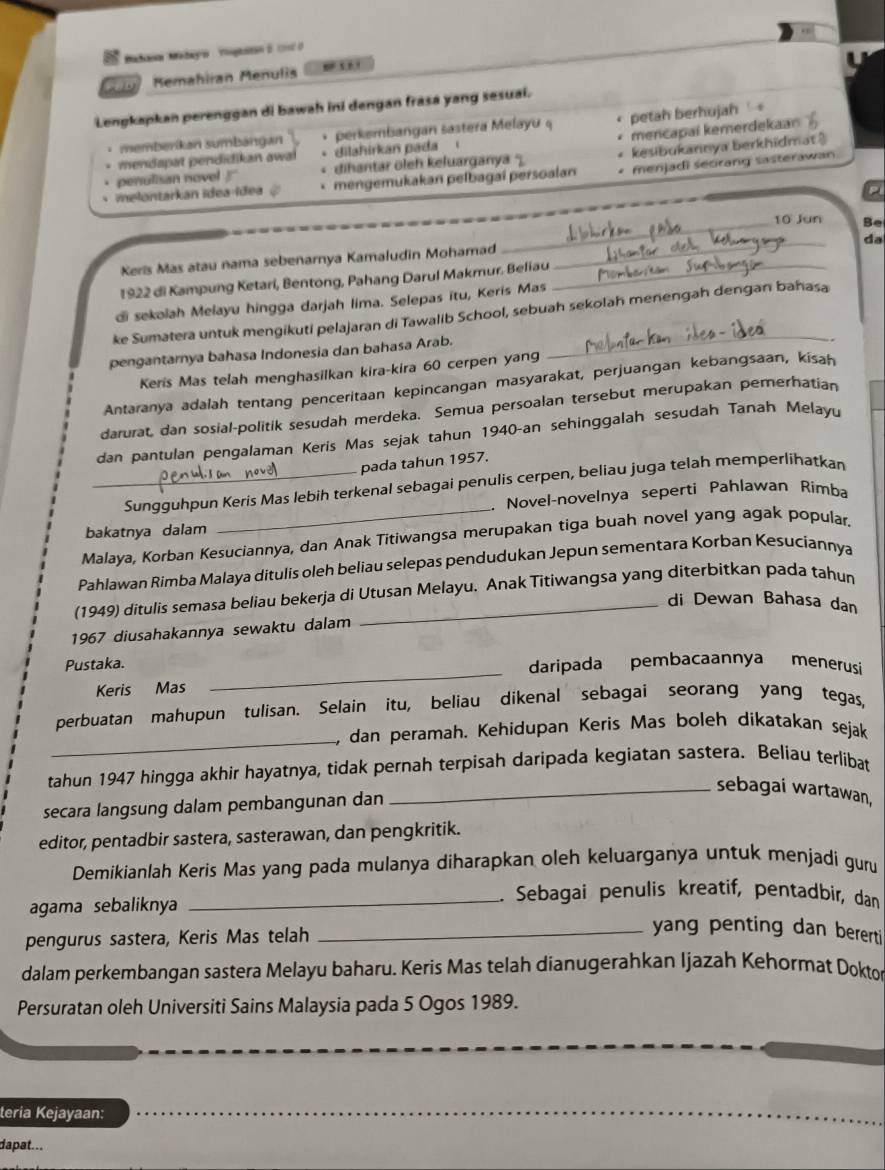 Kemahiran Menulis
Lengkapkan perenggan di bawah ini dengan frasa yang sesuai.
• memberikan sumbangan • perkembangan sastera Melayu • petah berhujah
• mendapat pendidikan awal • dilahirkan pada • mencapai kemerdekaan
• penulisan novel • dihantar oleh keluarganya • kesibukannya berkhidmat
• melontarkan idea-idea • mengemukakan pelbagai persoalan • menjadi seorang sasterawan
Keris Mas atau nama sebenarnya Kamaludin Mohamad dilahirkan pada 10 Jun
1922 di Kampung Ketari, Bentong, Pahang Darul Makmur. Beliau dihantar oleh keluarganya
di sekolah Melayu hingga darjah lima. Selepas itu, Keris Mas
ke Sumatera untuk mengikuti pelajaran di Tawalib School, sebuah sekolah menengah dengan bahasa
pengantarnya bahasa Indonesia dan bahasa Arab.
Keris Mas telah menghasilkan kira-kira 60 cerpen yang melontarkan idea-idea.
Antaranya adalah tentang penceritaan kepincangan masyarakat, perjuangan kebangsaan, kisah
darurat, dan sosial-politik sesudah merdeka. Semua persoalan tersebut merupakan pemerhatian
dan pantulan pengalaman Keris Mas sejak tahun 1940-an sehinggalah sesudah Tanah Melayu
penulisan novel pada tahun 1957.
Sungguhpun Keris Mas lebih terkenal sebagai penulis cerpen, beliau juga telah memperlihatkan
bakatnya dalam ____. Novel-novelnya seperti Pahlawan Rimba
Malaya, Korban Kesuciannya, dan Anak Titiwangsa merupakan tiga buah novel yang agak popular.
Pahlawan Rimba Malaya ditulis oleh beliau selepas pendudukan Jepun sementara Korban Kesuciannya
(1949) ditulis semasa beliau bekerja di Utusan Melayu. Anak Titiwangsa yang diterbitkan pada tahun
1967 diusahakannya sewaktu dalam ____ di Dewan Bahasa dan
Pustaka.
Keris Mas ____ daripada pembacaannya menerusi
perbuatan mahupun tulisan. Selain itu, beliau dikenal sebagai seorang yang tegas,
____, dan peramah. Kehidupan Keris Mas boleh dikatakan sejak
tahun 1947 hingga akhir hayatnya, tidak pernah terpisah daripada kegiatan sastera. Beliau terlibat
secara langsung dalam pembangunan dan ____ sebagai wartawan,
editor, pentadbir sastera, sasterawan, dan pengkritik.
Demikianlah Keris Mas yang pada mulanya diharapkan oleh keluarganya untuk menjadi guru
agama sebaliknya ____. Sebagai penulis kreatif, pentadbir, dan
pengurus sastera, Keris Mas telah ____ yang penting dan bererti
dalam perkembangan sastera Melayu baharu. Keris Mas telah dianugerahkan Ijazah Kehormat Doktor
Persuratan oleh Universiti Sains Malaysia pada 5 Ogos 1989.
teria Kejayaan:
dapat...
Be
da